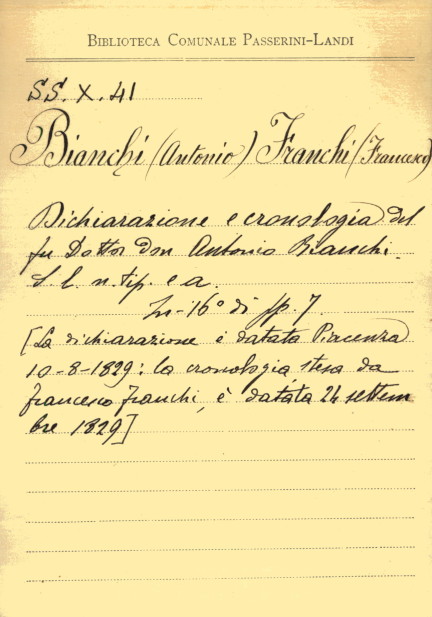 BIBLIOTECA COMUNALE PASSERINI-LANDI
SS. X. 41
Bianchi (Antonio) Franchi (Francesco)
Dichiarazione e cronologia del
fu Dottor don Antonio Bianchi.
S. l. n. tip. e a.
In-16° di pp. 7.
[La dichiarazione è datata Piacenza
10-8-1829: la cronologia stesa da
Francesco Franchi, è datata 24 settem
bre 1829]